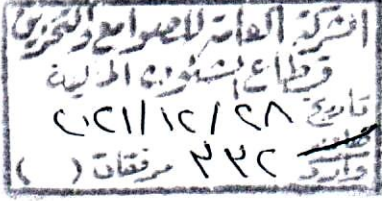 الشركة العامة للصوامع والتخزين
قطاع الشئون المالية
تاريخ ٢٠٢١/١٢/٢٨
وارد ٣٣٢ مرفقات ( )